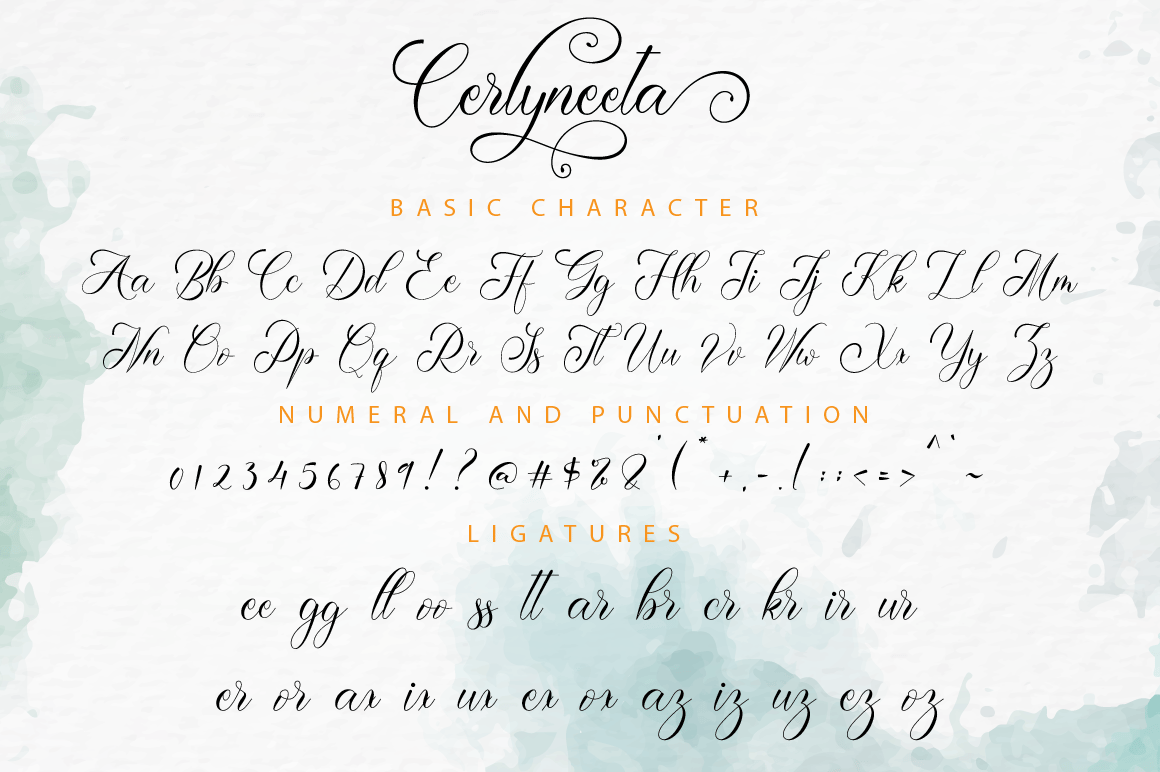 Cerlyneeta
BASIC CHARACTER
Aa Bb Cc Dd Ee Ff Gg Hh Ii Jj Kk Ll Mm
Nn Oo Pp Qq Rr Ss Tt Uu Vv Ww Xx Yy Zz
NUMERAL AND PUNCTUATION
0 1 2 3 4 5 6 7 8 9 ! ? @ # $ % & ' ( * + , - . / : ; < = > ^ ` ~
LIGATURES
ee gg ll oo ss tt ar br cr kr ir ur
er or ax ix ux ex ox az iz uz ez oz